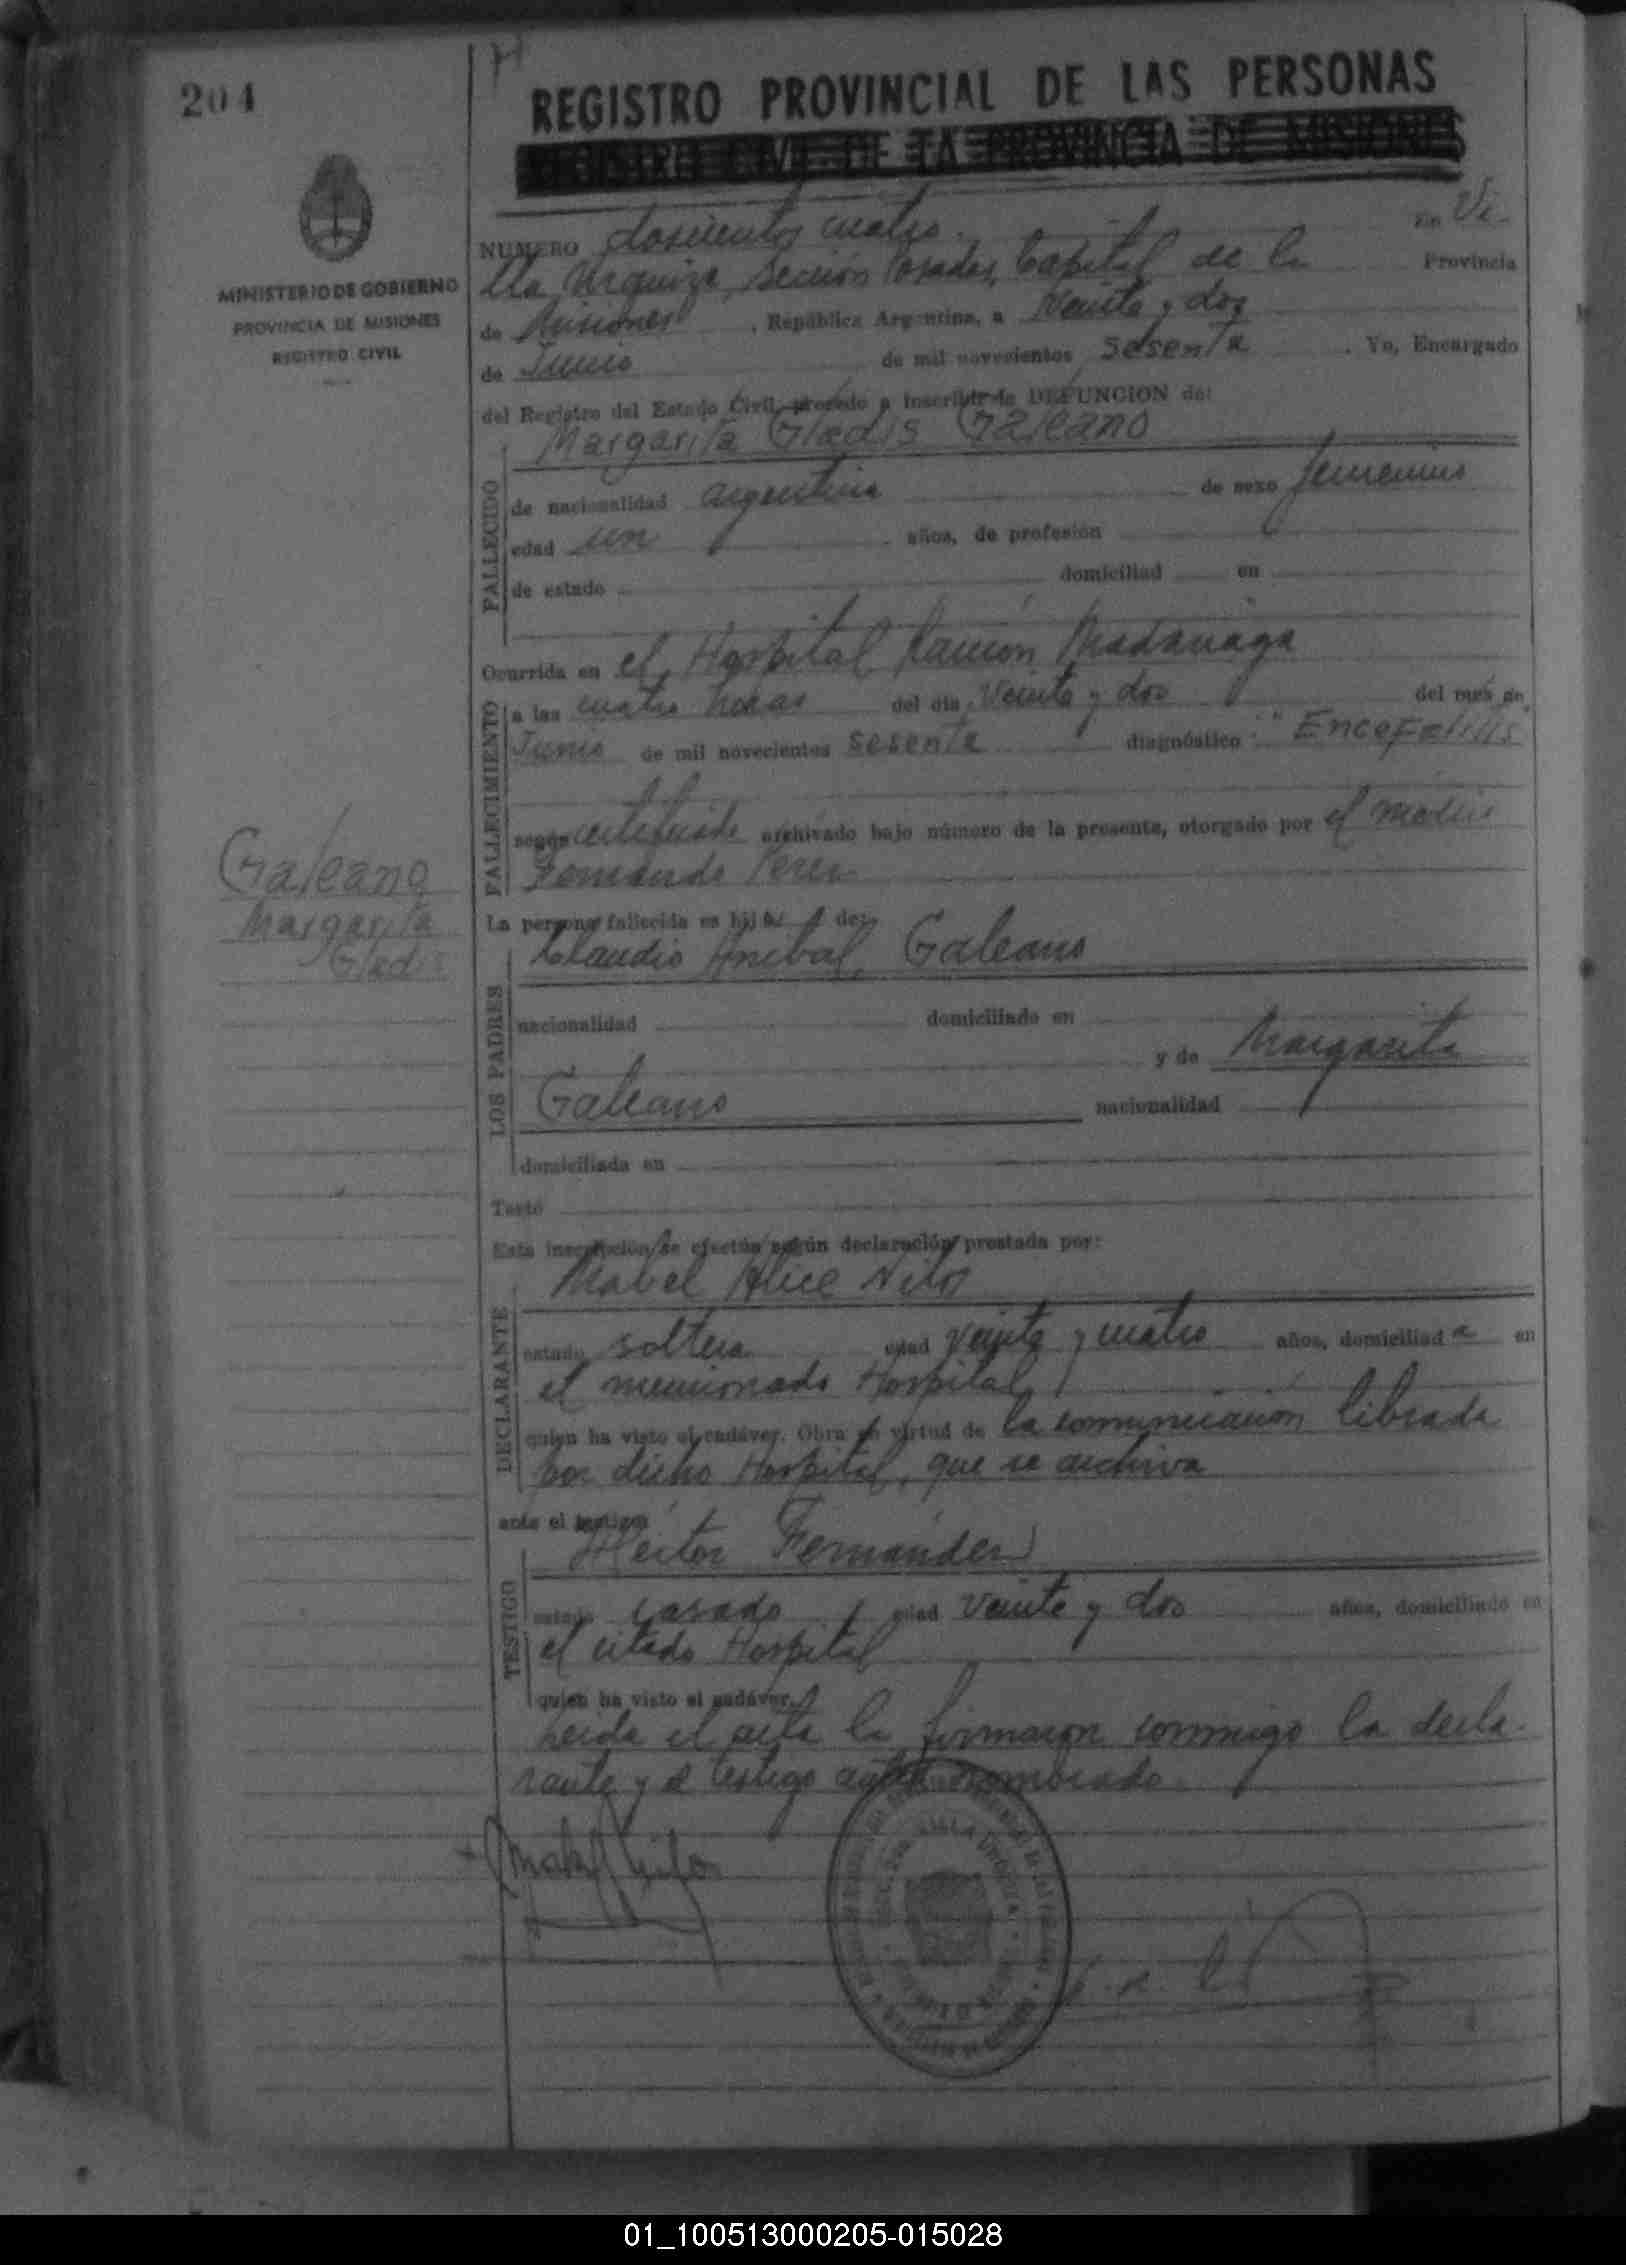 204
REGISTRO PROVINCIAL DE LAS PERSONAS
REGISTRO CIVIL DE LA PROVINCIA DE MISIONES
MINISTERIO DE GOBIERNO
PROVINCIA DE MISIONES
REGISTRO CIVIL
NUMERO dosciento cuatro. En Vi-
lla Urquiza, Sección Posadas, Capital de la Provincia
de Misiones, República Argentina, a veinte y dos
de Junio de mil novecientos sesenta. Yo, Encargado
del Registro del Estado Civil, procedo a inscribir la DEFUNCION de:
Margarita Gladis Galeano
FALLECIDO
de nacionalidad argentina de sexo femenino
edad un años, de profesión
de estado domiciliad en
Ocurrida en el Hospital Ramón Madariaga
FALLECIMIENTO
a las cuatro horas del día veinte y dos del mes de
Junio de mil novecientos sesenta diagnóstico "Encefalitis"
según certificado archivado bajo número de la presente, otorgado por el médico
Perez
Galeano
Margarita
Gladis
La persona fallecida es hija de:
Claudio Anibal Galeano
LOS PADRES
nacionalidad domiciliado en
y de Margarita
Galeano nacionalidad
domiciliada en
Testó
Esta inscripción se efectúa según declaración prestada por:
Mabel Alice
DECLARANTE
estado soltera edad veinte y cuatro años, domiciliada en
el mencionado Hospital
quien ha visto el cadáver. Obra en virtud de la comunicación librada
por dicho Hospital, que se archiva
ante el testigo
Héctor Fernández
TESTIGO
estado casado edad veinte y dos años, domiciliado en
el citado Hospital
quien ha visto el cadáver.
Leída el acta la firmaron conmigo la decla-
rante y el testigo nombrado.
VILLA URQUIZA
01_100513000205-015028